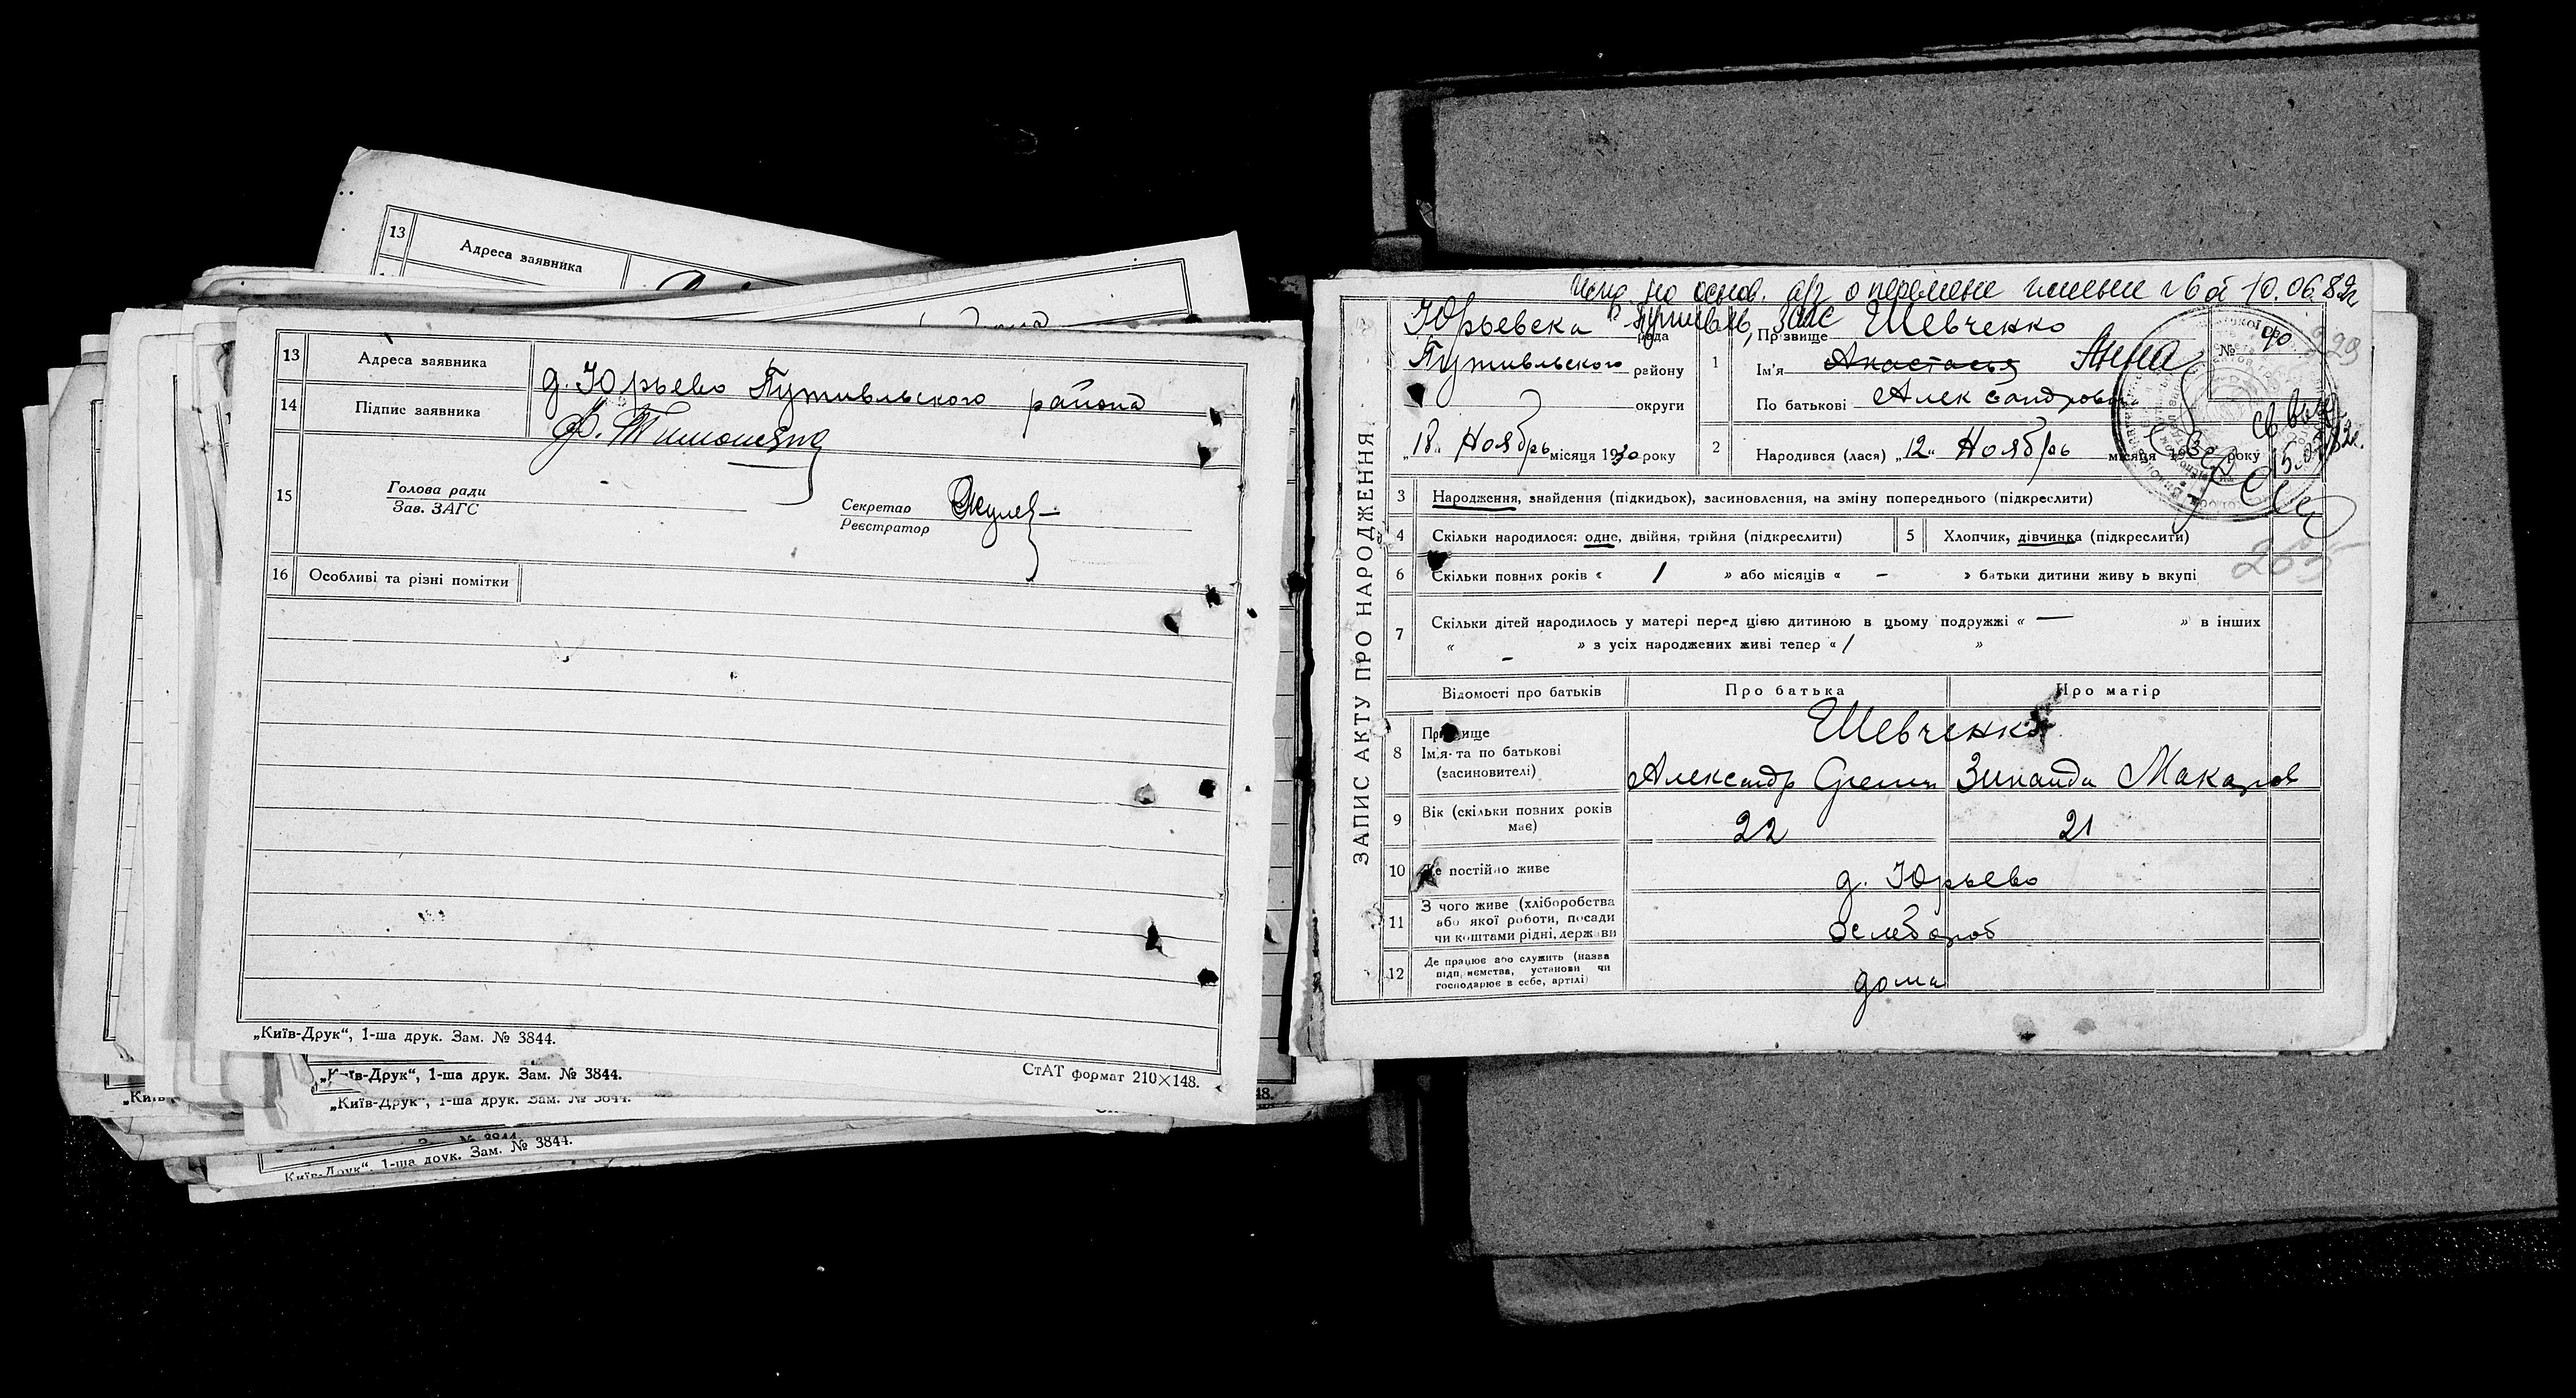 13 Адреса заявника
13 Адреса заявника д. Юрьево Путивльского района
14 Підпис заявника
15 Голова ради
Зав. ЗАГС
Секретар
Реєстратор
16 Особливі та різні помітки
„Київ-Друк“, 1-ша друк. Зам. № 3844.
СтАТ формат 210×148.
в-Друк“, 1-ша друк. Зам. № 3844.
„Київ-Друк“, 1-ша друк. Зам. № 3844.
1-ша друк. Зам. № 3844.
ЗАПИС АКТУ ПРО НАРОДЖЕННЯ
о перемене 10.06.82
Юрьевска рада
Путивльского району
округи
„18“ Ноябрь місяця 1930 року
1 Прізвище Шевченко
Ім'я Анастасья Анна
По батькові Александровн
№ 90
229
2 Народився (лася) „12“ Ноябрь місяця 1930 року
3 Народження, знайдення (підкидьок), засиновлення, на зміну попереднього (підкреслити)
4 Скільки народилося: одне, двійня, трійня (підкреслити) 5 Хлопчик, дівчинка (підкреслити)
265
6 Скільки повних років « 1 » або місяців « - » батьки дитини живу ь вкупі
7 Скільки дітей народилось у матері перед цією дитиною в цьому подружжі « — » в інших
« - » з усіх народжених живі тепер « 1 »
Відомості про батьків Про батька Про матір
8 Прізвище Шевченко
Ім'я та по батькові
(засиновителі) Александр Зинаида Макаров
9 Вік (скільки повних років має) 22 21
10 Де постійно живе д. Юрьево
11 З чого живе (хліборобства
або якої роботи, посади
чи коштами рідні, держави
12 Де працює або служить (назва
підприємства, установи чи
господарює в себе, артілі) дома